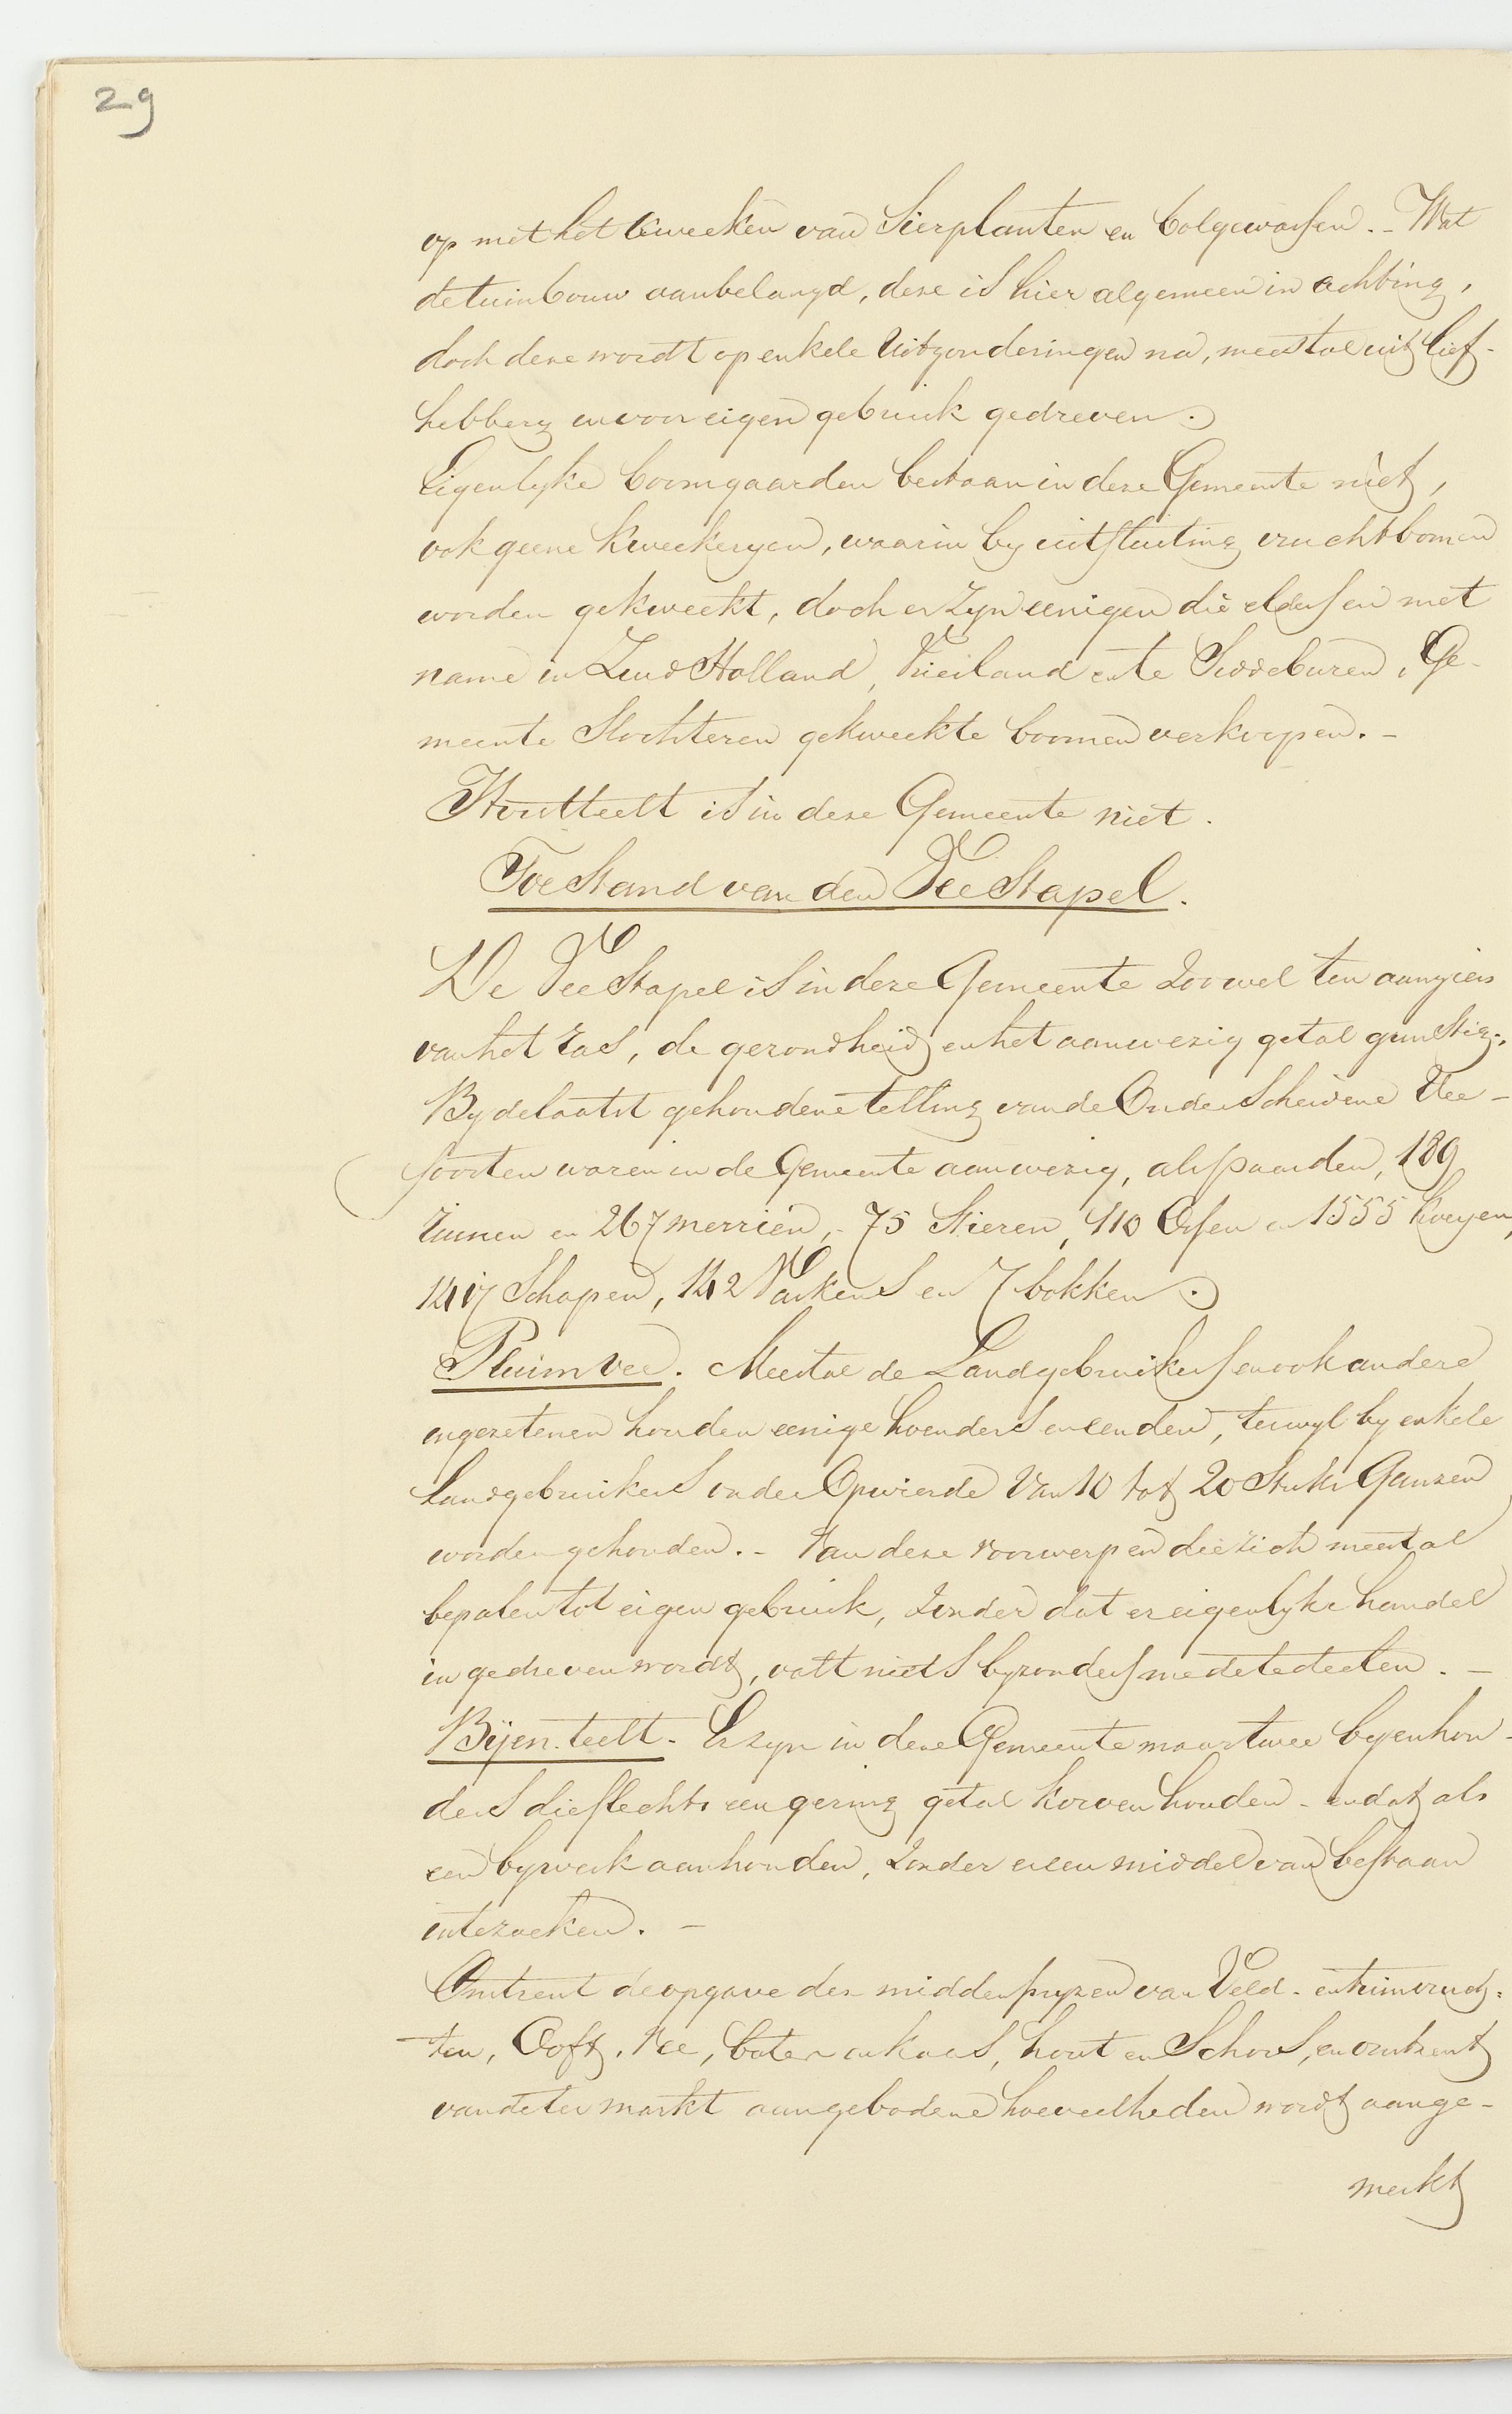 29
op met het kweeken van Sierplanten en bolgewassen. - Wat
de tuinbouw aanbelangd, deze is hier algemeen in achting,
doch deze wordt op enkele Uitzonderingen na, meestal uit lief-
hebbery en voor eigen gebruik gedreven.
Eigenlyke boomgaarden bestaan in deze Gemeente niet,
ook geene kweekeryen, waarin by uitsluiting vruchtboomen
worden gekweekt, doch er zyn eenigen die elders en met
name in Zuid Holland, Friesland en te Siddeburen, Ge-
meente Slochteren gekweekte boomen verkoopen. -
Houtteelt is in deze Gemeente niet.
Toestand van den Vee Stapel.
De Vee Stapel is in deze Gemeente Zoowel ten aanzien
van het ras, de gezondheid en het aanwezig getal gunstig.
By de laatst gehoudene telling van de Onderscheidene Vee-
soorten waren in de Gemeente aanwezig, als paarden, 189
ruinen en 267 merrien, - 75 Stieren, 110 Ossen en 1555 koeyen,
1417 Schapen, 142 Varkens en 7 bokken.
Pluimvee. Meestal de Landgebruikers en ook andere
ingezetenen houden eenige hoenders en eenden, terwyl by enkele
Landgebruikers onder Opwierde van 10 tot 20 Stuks Ganzen
worden gehouden. - Van deze voorwerpen die zich meestal
bepalen tot eigen gebruik, zonder dat er eigenlyke handel
in gedreven wordt, valt niets byzonders mede te deelen. -
Bijen-teelt - Er zyn in deze Gemeente maar twee byenhou-
ders die slechts een gering getal korven houden - en dat als
een bywerk aanhouden, zonder er een middel van bestaan
in te zoeken. -
Omtrent de opgave der middenpryzen van Veld- en tuinvruch-
ten, Ooft, Vee, boter en kaas, hout en Schors, en omtrent
van de ter markt aangebodene hoeveelheden wordt aange-
merkt